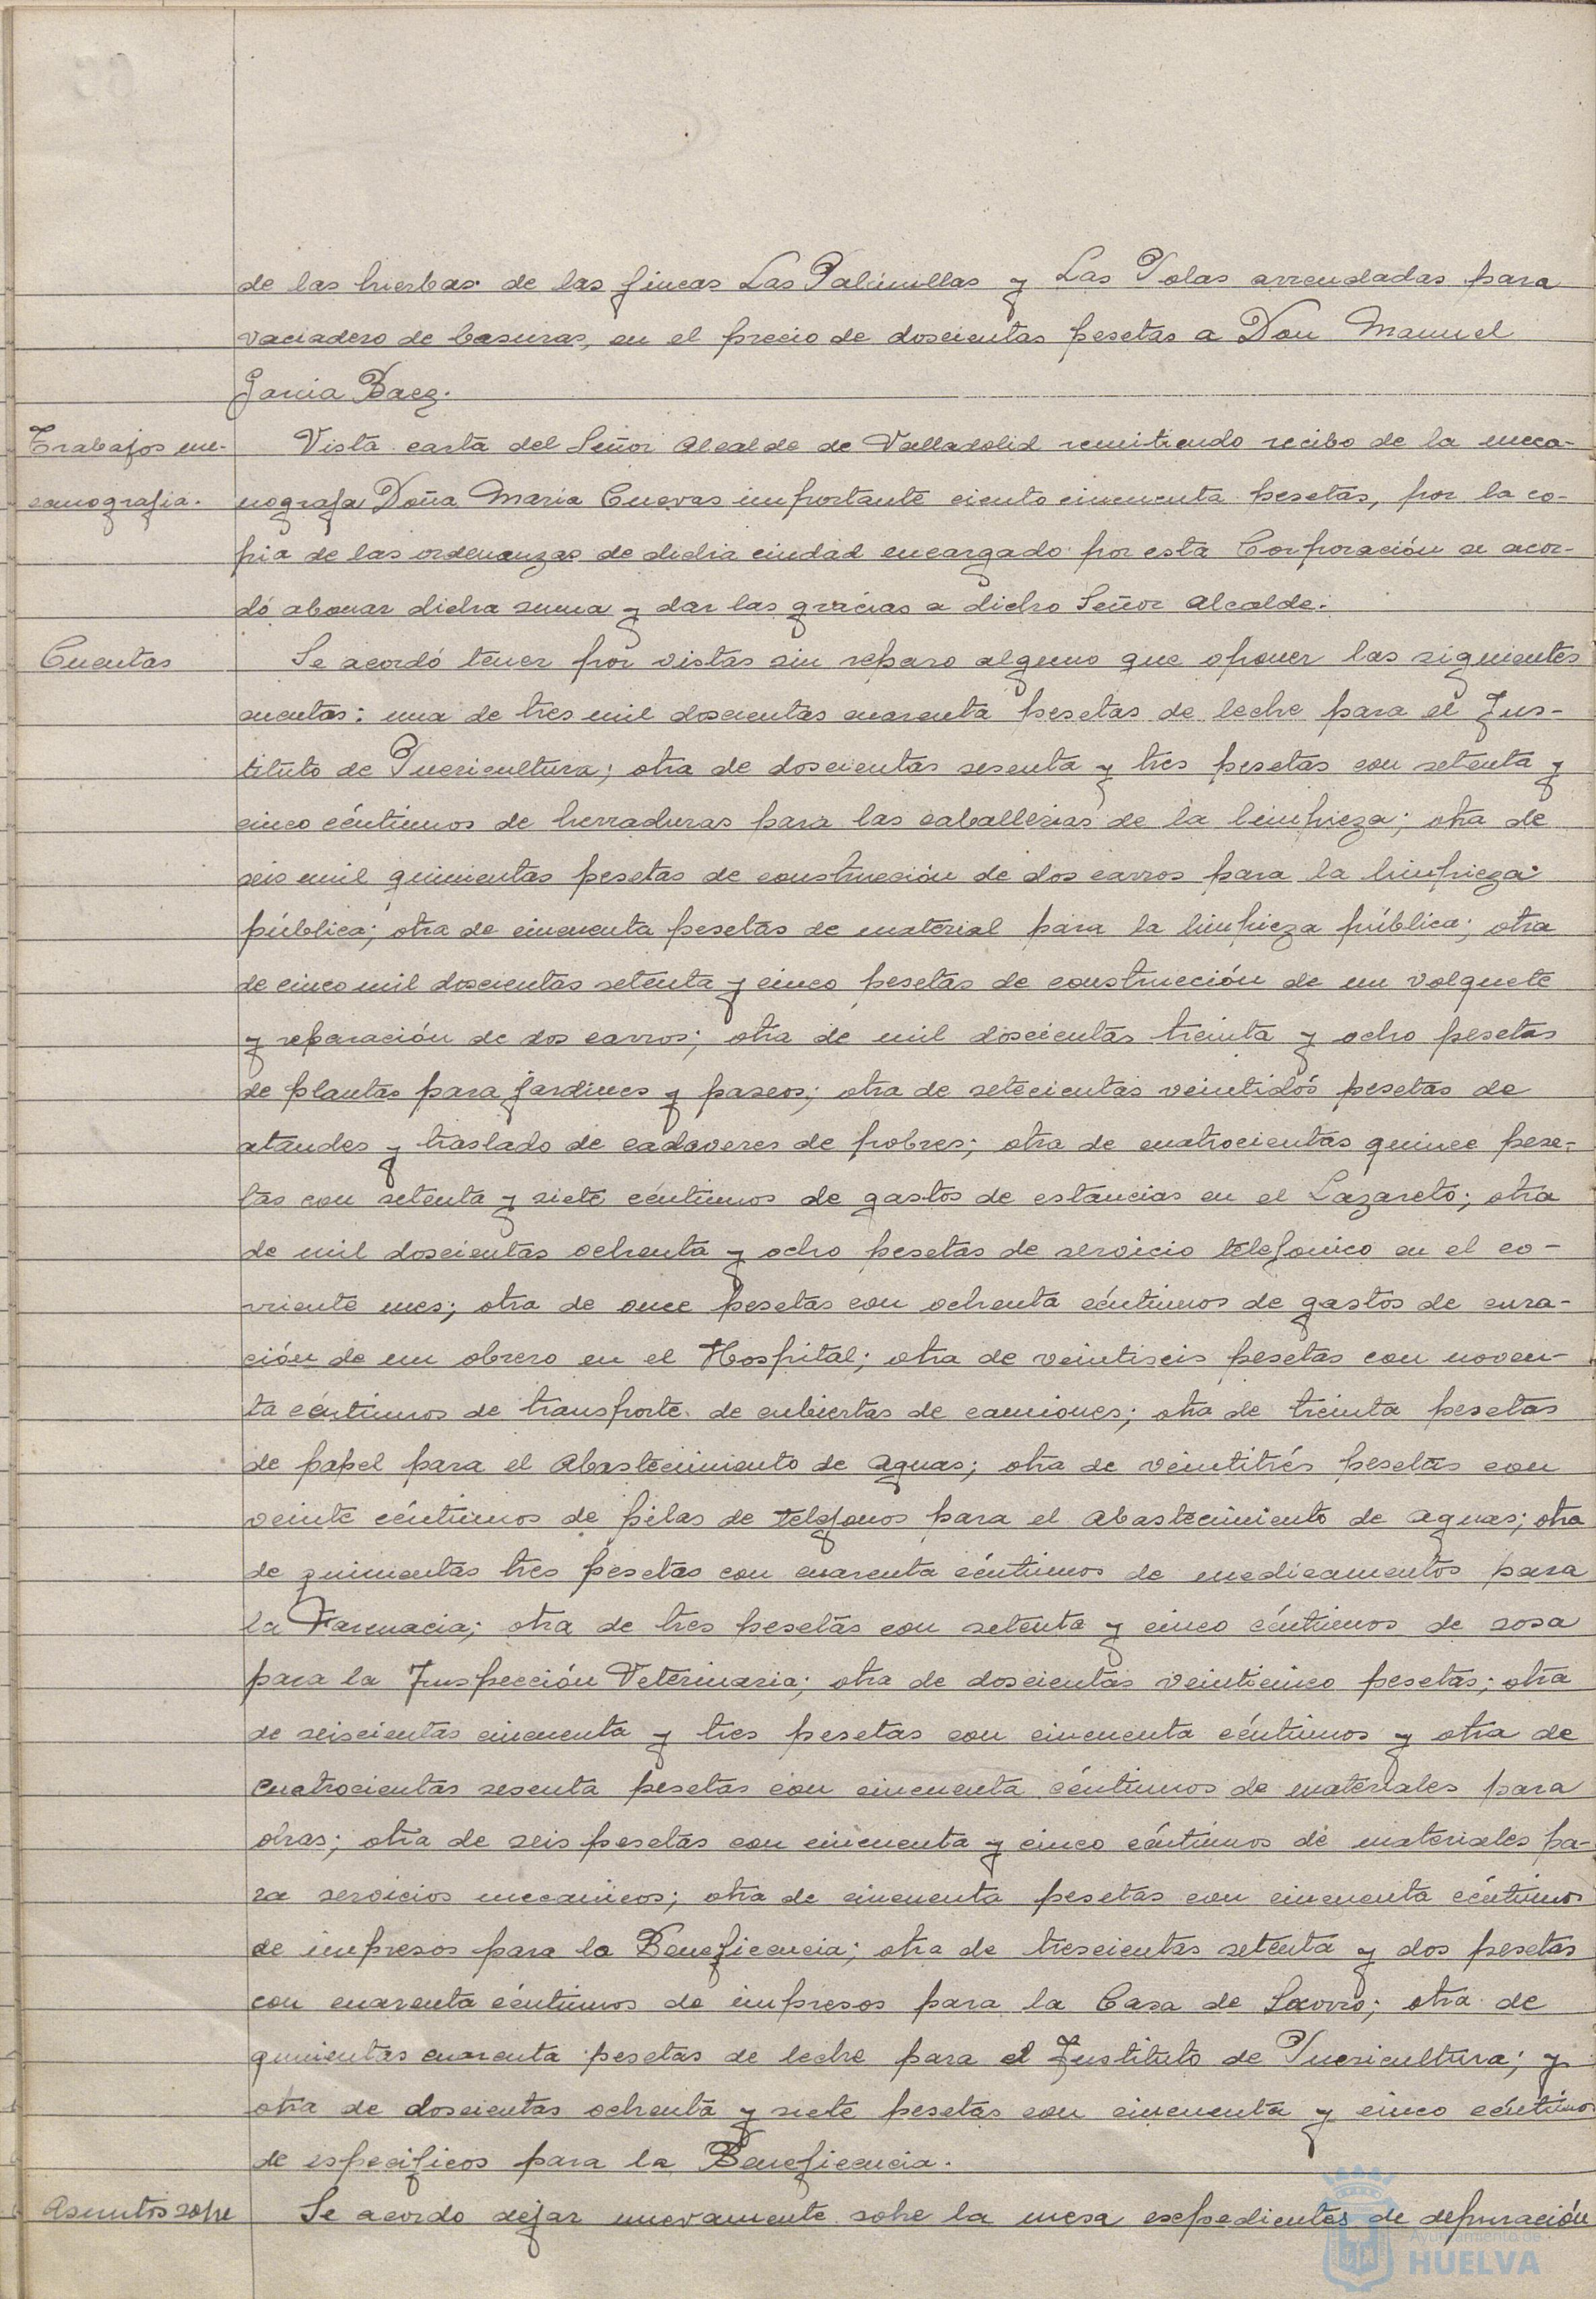 de las hierbas de las fincas Las Palmillas y Las Polas arrendadas para
vaciadero de basuras, en el precio de doscientas pesetas a Don Manuel
Garcia Baez.
Trabajos me- Vista carta del Señor Alcalde de Valladolid remitiendo recibo de la meca-
canografia. nografa Doña Maria Cuevas importante ciento cincuenta pesetas, por la co-
pia de las ordenanzas de dicha ciudad encargado por esta Corporación se acor-
dó abonar dicha suma y dar las gracias a dicho Señor Alcalde.
Cuentas Se acordó tener por vistas sin reparo alguno que oponer las siguientes
cuentas: una de tres mil doscientas cuarenta pesetas de leche para el Ins-
tituto de Puericultura; otra de doscientas sesenta y tres pesetas con setenta y
cinco céntimos de herraduras para las caballerias de la limpieza; otra de
seis mil quinientas pesetas de construcción de dos carros para la limpieza
pública; otra de cincuenta pesetas de material para la limpieza pública; otra
de cinco mil doscientas setenta y cinco pesetas de construcción de un volquete
y reparación de dos carros; otra de mil doscientas treinta y ocho pesetas
de plantas para jardines y paseos; otra de setecientas veintidós pesetas de
ataudes y traslado de cadaveres de pobres; otra de cuatrocientas quince pese-
tas con setenta y siete céntimos de gastos de estancias en el Lazareto; otra
de mil doscientas ochenta y ocho pesetas de servicio telefonico en el co-
rriente mes; otra de once pesetas con ochenta céntimos de gastos de cura-
ción de un obrero en el Hospital; otra de veintiseis pesetas con noven-
ta céntimos de transporte de cubiertas de camiones; otra de treinta pesetas
de papel para el Abastecimiento de Aguas; otra de veintitrés pesetas con
veinte céntimos de pilas de telefonos para el Abastecimiento de Aguas; otra
de quinientas tres pesetas con cuarenta céntimos de medicamentos para
la Farmacia; otra de tres pesetas con setenta y cinco céntimos de sosa
para la Inspección Veterinaria; otra de doscientas veinticinco pesetas; otra
de seiscientas cincuenta y tres pesetas con cincuenta céntimos y otra de
cuatrocientas sesenta pesetas con cincuenta céntimos de materiales para
obras; otra de seis pesetas con cincuenta y cinco céntimos de materiales pa-
ra servicios mecanicos; otra de cincuenta pesetas con cincuenta céntimos
de impresos para la Beneficencia; otra de trescientas setenta y dos pesetas
con cuarenta céntimos de impresos para la Casa de Socorro; otra de
quinientas cuarenta pesetas de leche para el Instituto de Puericultura; y
otra de doscientas ochenta y siete pesetas con cincuenta y cinco céntimos
de especificos para la Beneficencia.
Asuntos sobre Se acordo dejar nuevamente sobre la mesa expedientes de depuración
Ayuntamiento de
HUELVA